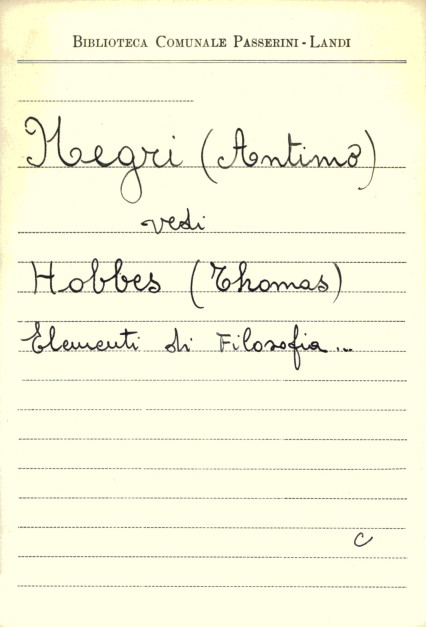 BIBLIOTECA COMUNALE PASSERINI - LANDI
Negri (Antimo)
vedi
Hobbes (Thomas)
Elementi di Filosofia...
C